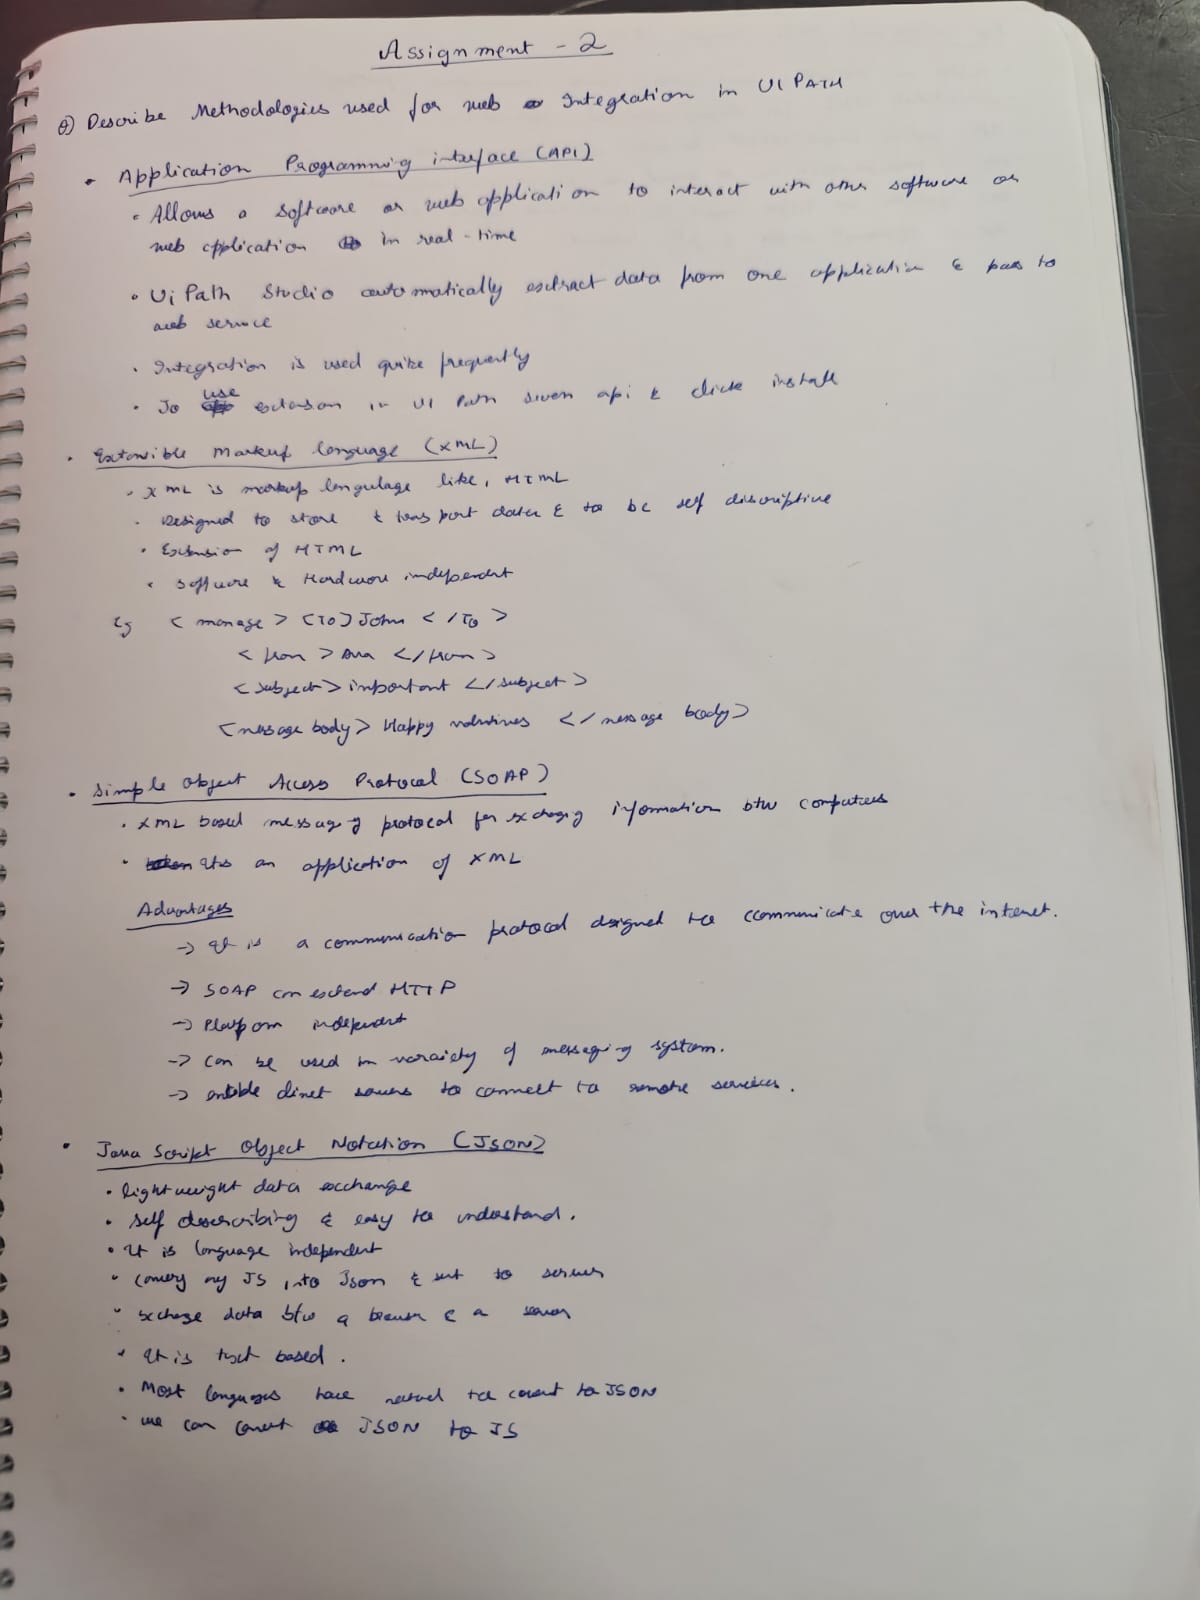 Assignment - 2
Q) Describe Methodologies used for web Integration in UI PATH
• Application Programming interface (API)
• Allows a software or web application to interact with other software or
web application in real-time
• Ui Path Studio automatically extract data from one application & pass to
web service
• Integration is used quite frequently
• To use extension in UI Path seven api & click install
• Extensible Markup language (XML)
• XML is markup langulage like, HTML
• Designed to store & transport data & to be self discriptive
• Extension of HTML
• Software & Hardware independent
Eg < manage > <To> John < /To >
< from > Ava </from >
<subject> important </subject>
<message body> Happy </ message body>
• Simple Object Access Protocol (SOAP)
• XML based messaging protocol for exchanging information btw computers
• Its an application of XML
Advantages
→ It is a communication protocol designed to communicate over the internet.
→ SOAP can extend HTTP
→ Platform independent
→ Can be used in variety of messaging system.
→ to connect to remote services.
• Java Script Object Notation (JSON)
• lightweight data exchange
• Self describing & easy to understand.
• It is language independent
• any JS into Json & sent to server
• Exchange data b/w a browser & a server
• It is text based.
• Most languages have to convert to JSON
• we can convert JSON to JS